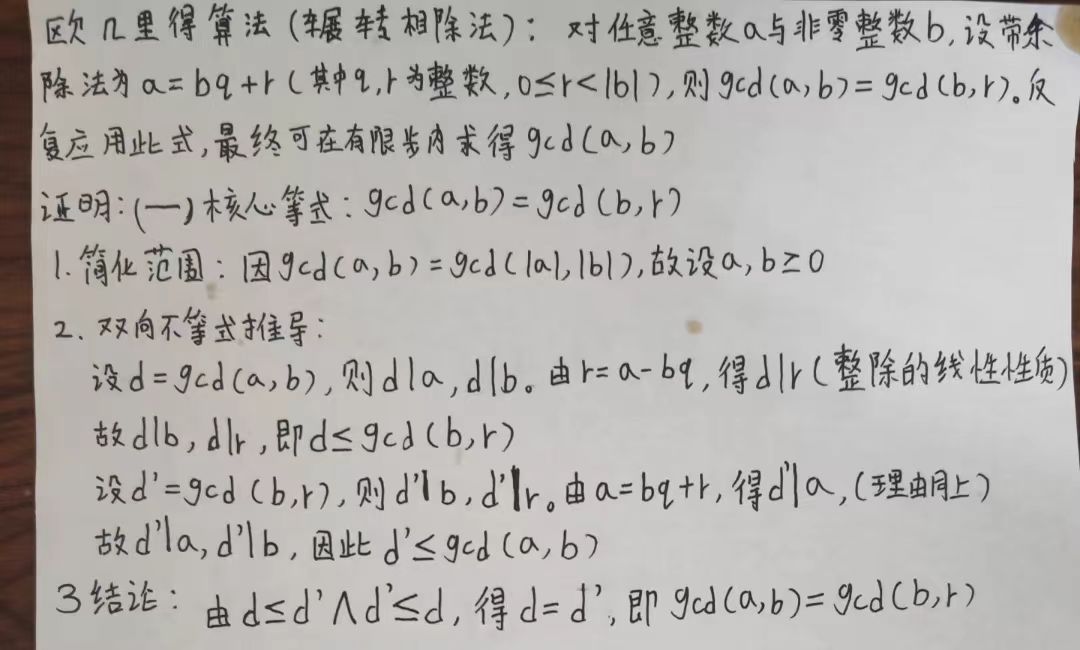 欧几里得算法(辗转相除法): 对任意整数a与非零整数b,设带余
除法为a=bq+r(其中q,r为整数,0≤r<|b|),则gcd(a,b)=gcd(b,r)。反
复应用此式,最终可在有限步内求得gcd(a,b)
证明:(一)核心等式:gcd(a,b)=gcd(b,r)
1.简化范围:因gcd(a,b)=gcd(|a|,|b|),故设a,b≥0
2、双向不等式推导:
设d=gcd(a,b),则d|a,d|b。由r=a-bq,得d|r(整除的线性性质)
故d|b,d|r,即d≤gcd(b,r)
设d'=gcd(b,r),则d'|b,d'|r。由a=bq+r,得d'|a,(理由同上)
故d'|a,d'|b,因此d'≤gcd(a,b)
3结论:由d≤d'∧d'≤d,得d=d',即gcd(a,b)=gcd(b,r)